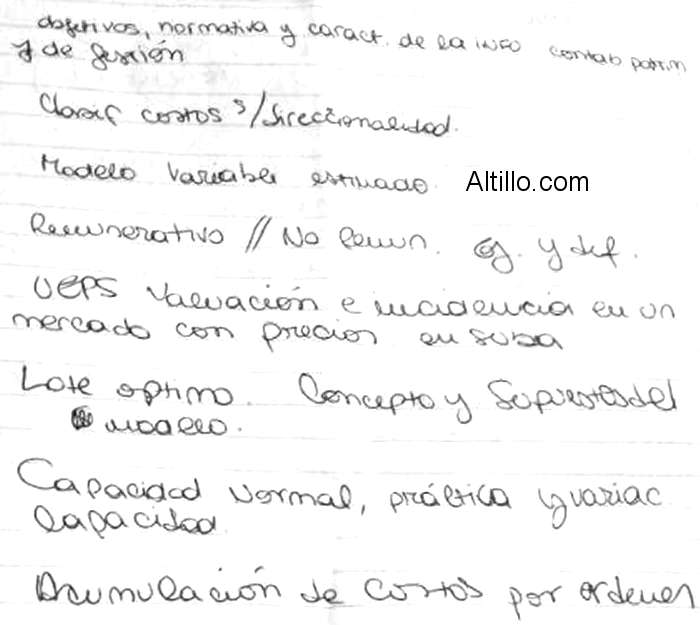 objetivos, normativa y caract. de la INFO contab patrim
y de gestión
Clasif costos s/direccionalidad.
Modelo Variable estimado. Altillo.com
Remunerativo // No Remun. ej. y def.
UEPS Valuación e incidencia en un
mercado con precios en suba
Lote optimo. Concepto y Supuestos del
modelo.
Capacidad Normal, práctica y variac
capacidad
Acumulación de costos por ordenes